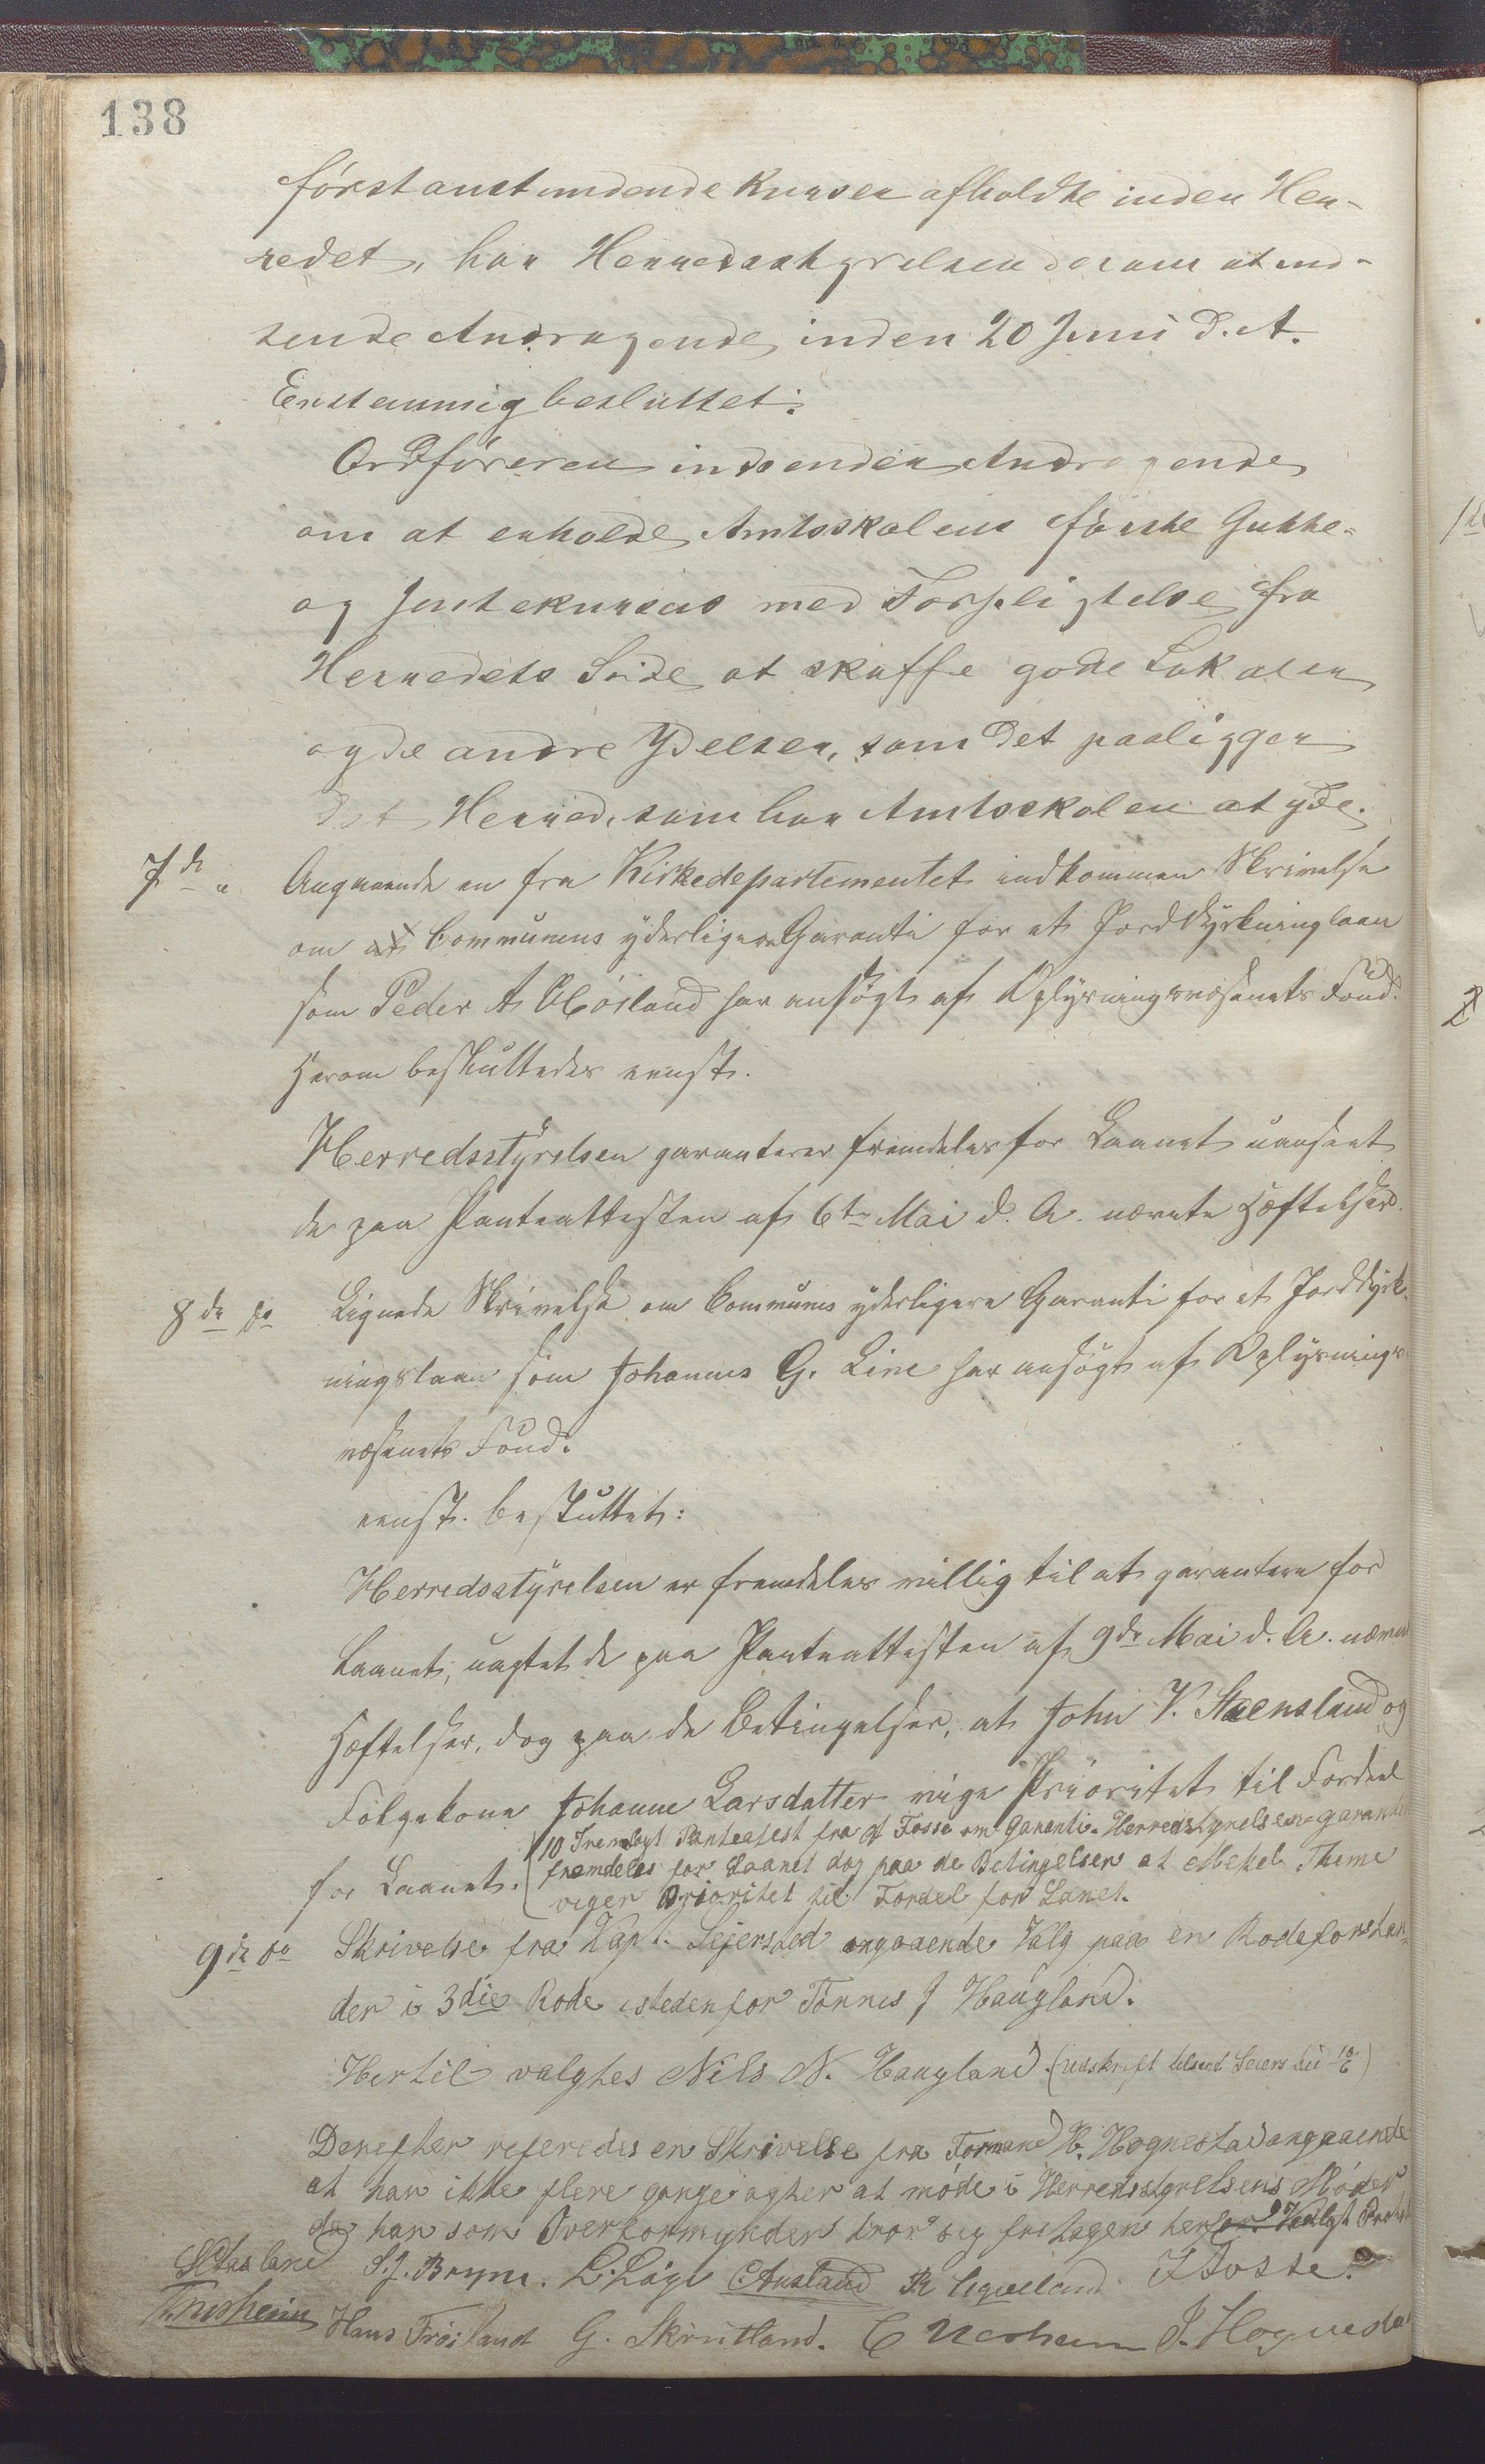 138
förstanstundende Kurser afholdte inden Her-
redet, har Herredsstyrelsen derom at ind-
sende Andragende inden 20 Juni d. A.
Enstemmig besluttet:
Ordföreren indsender Andragende
om at erholde Amtsskolens förste Gutte-
og Jentekursus med Forpligtelse fra
Herredets Side at skaffe gode Lokaler
og de andre Ydelser, som det paaligger
det Herred, som har Amtsskolen at yde.
7de Angaaende en fra Kirkedepartementet indkommen Skrivelse
om Communens yderligere Garanti for et Jorddyrkningslaan
som Peder A Høiland har ansögt af Oplysningsvæsenets Fond.
Herom besluttedes eenst.
Herredsstyrelsen garanterer fremdeles for Laanet uanseet
de paa Panteattesten af 6te Mai d. A. nævnte Hæftelser.
8de So Lignede Skrivelse om Communes yderligere Garanti for et Jorddyrk-
ningslaan som Johannes G. Line har ansögt af Oplysnings
væsenets Fond.
eenst. besluttet:
Herredsstyrelsen er fremdeles villig til at garantere for
Laanet, uagtet de paa Panteattesten af 9de Mai d. A. nævnte
Hæftelser, dog paa de Betingelser, at John V. Steensland og
Fölgekone Johanne Larsdatter viger Prioritet til Fordeel
for Laanet.
10 Fremlagt Panteatest fra A Fosse om Garanti. Herredstyrelsen garanter
fremdeles for Laanet dog paa de Betingelser at Mekel Thime
viger Prioritet til Fordel for Lanet.
9de So Skrivelse fra Kapt. Sejersted angaaende Valg paa en Rodeforstan-
der i 3die Rode istedenfor Tönnes J Haugland.
Hertil valgtes Nils N. Haugland. (Udskrift tilsent Seiersted 10/6)
Derefter referedes en Skrivelse fra Formand H. Hognestad angaaende
at han ikke flere gange agter at møde i Herredsstyrelsens Møder
da han som Overformynder tror sig fritagen herfor. Valgt Prot
S. J. Bryne. L. Löge Aasland R Taxeland J Fosse.
Hans Fröiland G. Skrutland. C Nesheim J. Hognestad